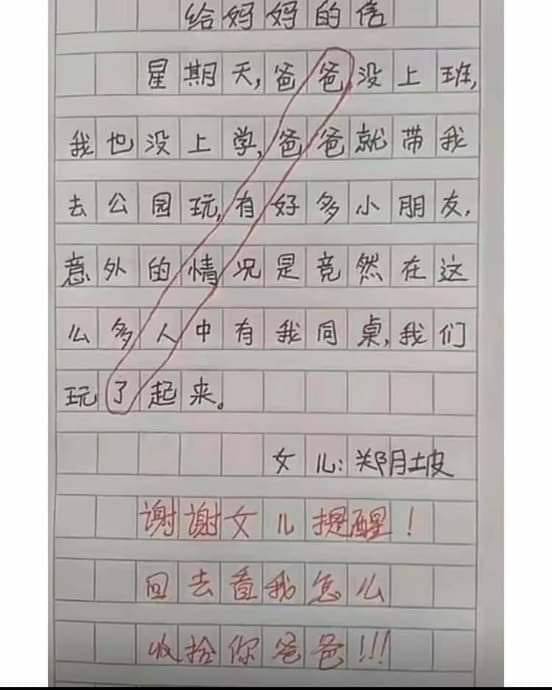 给妈妈的信
星期天,爸爸没上班,
我也没上学,爸爸就带我
去公园玩,有好多小朋友,
意外的情况是竟然在这
么多人中有我同桌,我们
玩了起来。
女儿:郑月坡
谢谢女儿提醒!
回去看我怎么
收拾你爸爸!!!